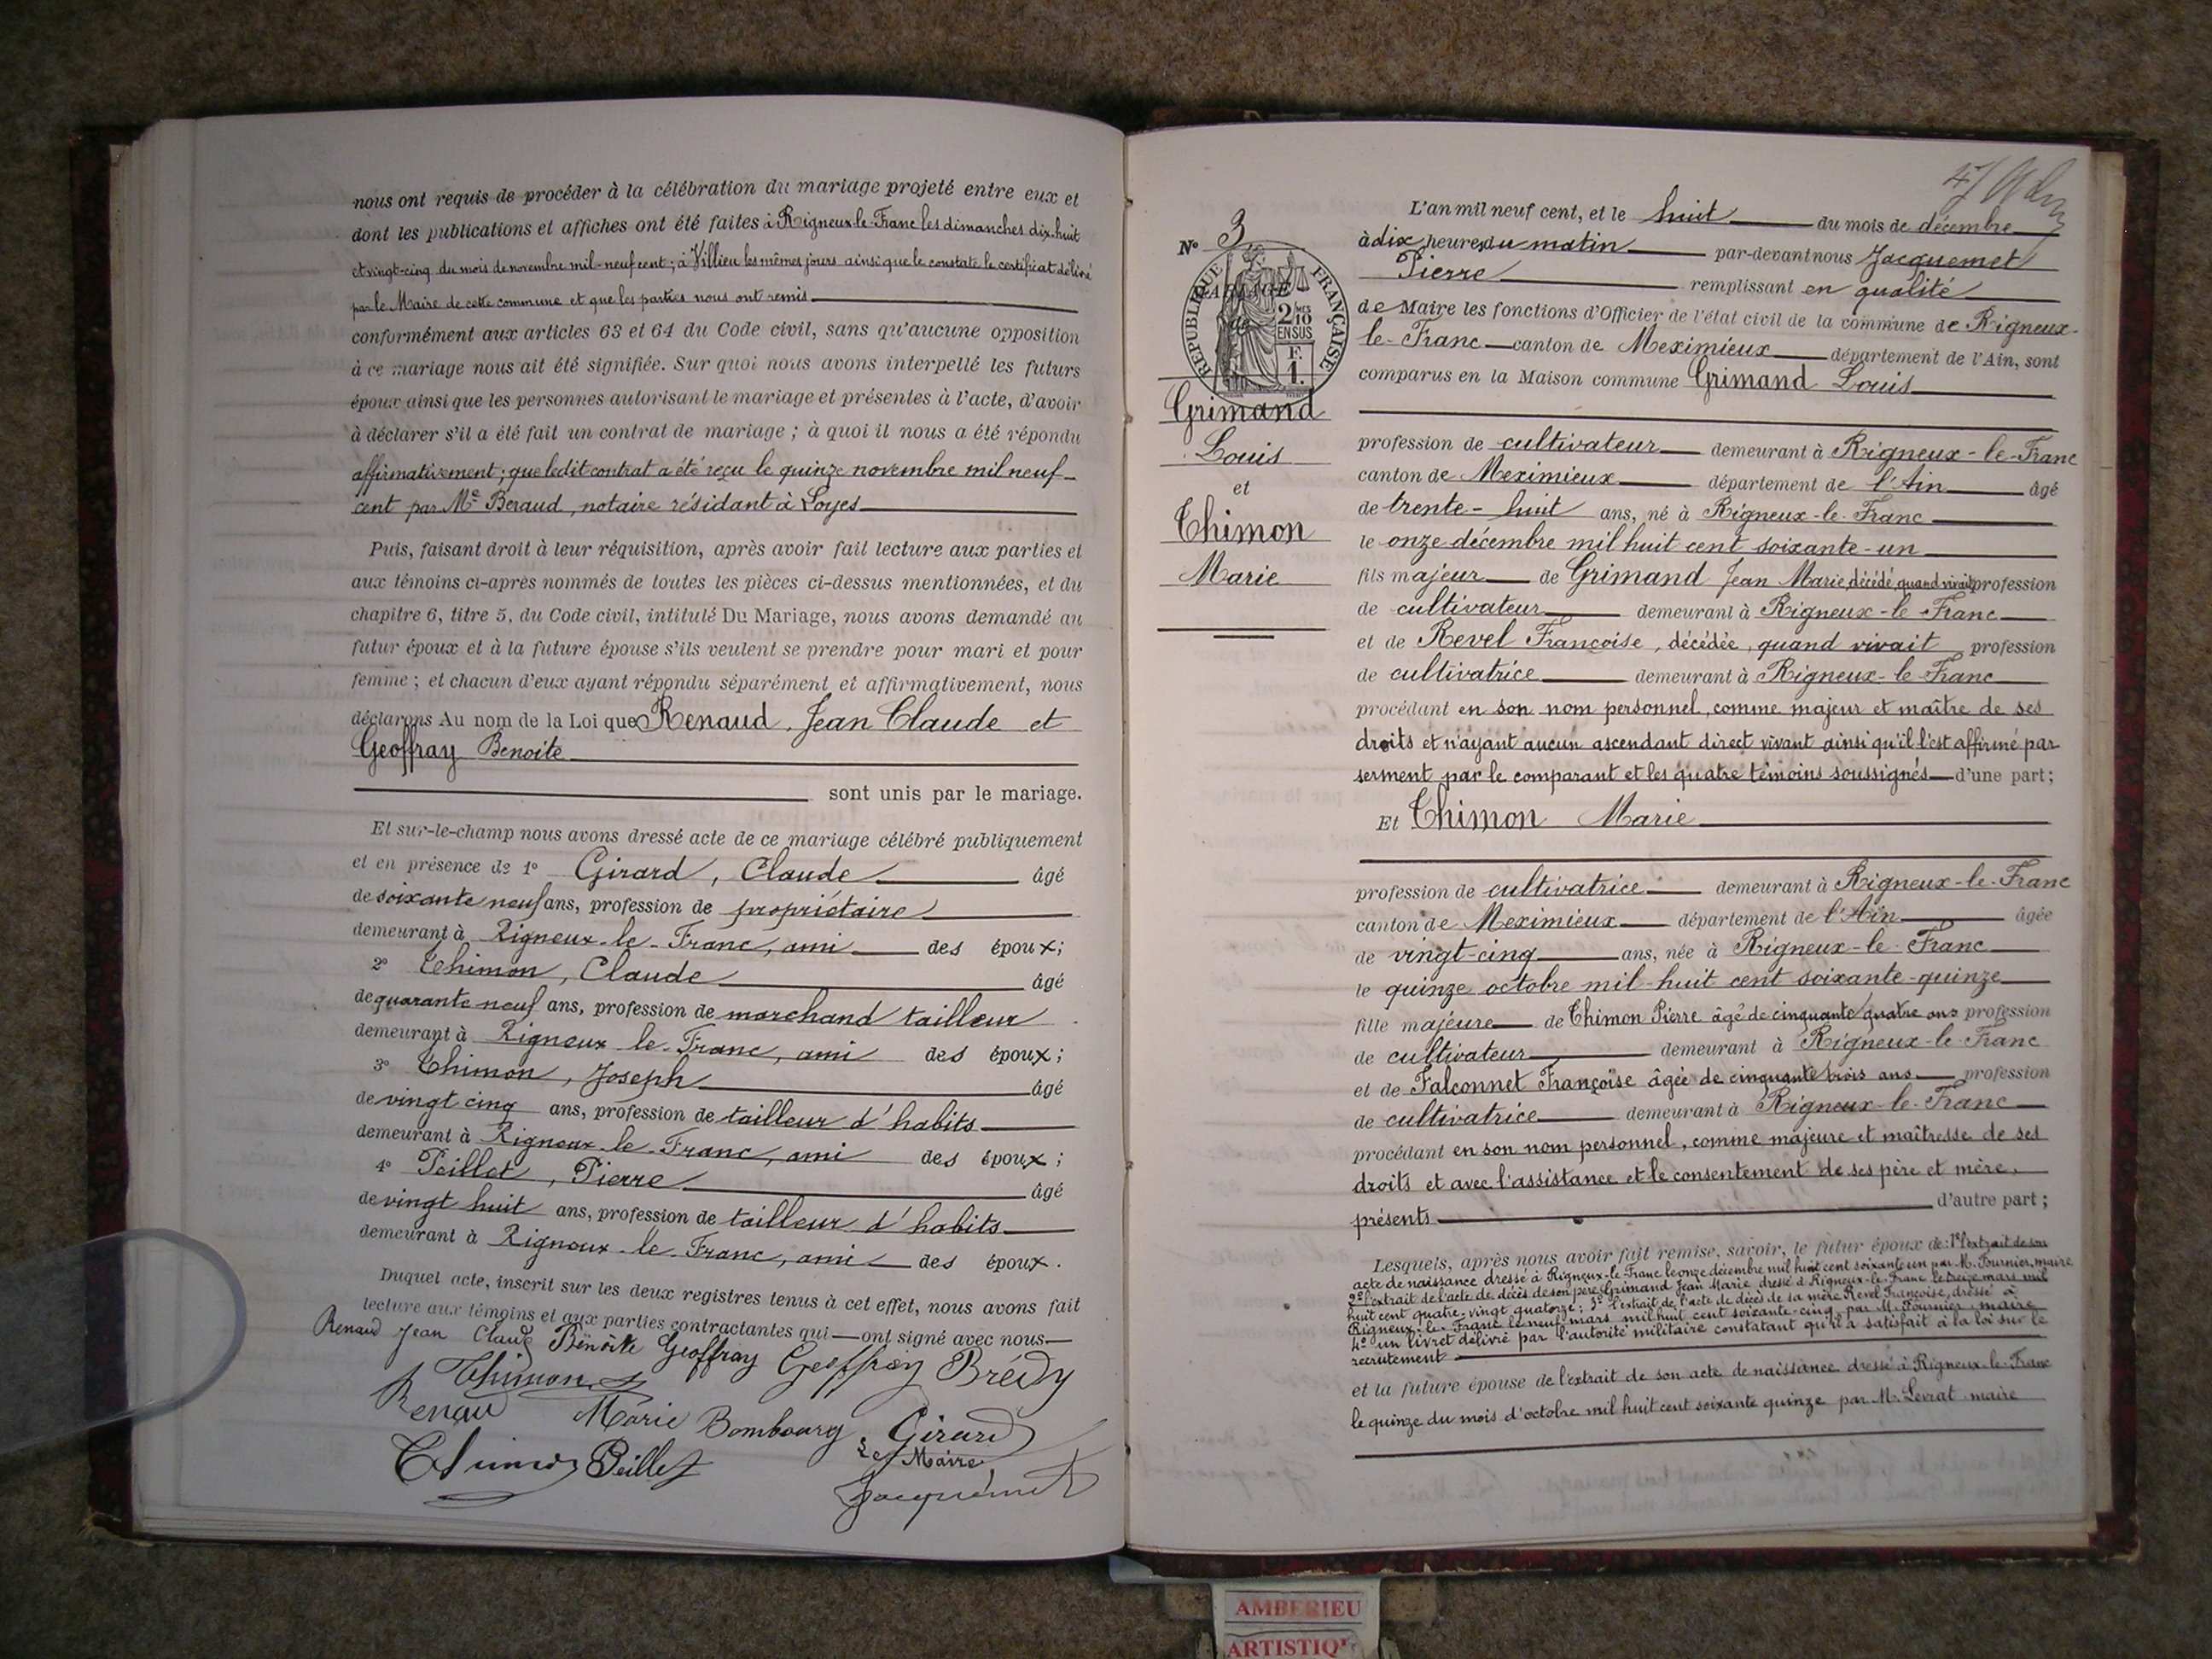 nous ont requis de procéder à la célébration du mariage projeté entre eux et
dont les publications et affiches ont été faites à Rigneux-le-Franc les dimanches dix-huit
et vingt-cinq du mois de novembre mil-neuf cent ; à Villieu les mêmes jours ainsi que le constate le certificat délivré
par le Maire de cette commune et que les parties nous ont remis
conformément aux articles 63 et 64 du Code civil, sans qu'aucune opposition
à ce mariage nous ait été signifiée. Sur quoi nous avons interpellé les futurs
époux ainsi que les personnes autorisant le mariage et présentes à l'acte, d'avoir
à déclarer s'il a été fait un contrat de mariage ; à quoi il nous a été répondu
affirmativement ; que ledit contrat a été reçu le quinze novembre mil neuf-
cent par Me Beraud, notaire résidant à Loyes
Puis, faisant droit à leur réquisition, après avoir fait lecture aux parties et
aux témoins ci-après nommés de toutes les pièces ci-dessus mentionnées, et du
chapitre 6, titre 5, du Code civil, intitulé Du Mariage, nous avons demandé au
futur époux et à la future épouse s'ils veulent se prendre pour mari et pour
femme ; et chacun d'eux ayant répondu séparément et affirmativement, nous
déclarons Au nom de la Loi que Renaud, Jean Claude et
Geoffray Benoite
sont unis par le mariage.
Et sur-le-champ nous avons dressé acte de ce mariage célébré publiquement
et en présence de 1° Girard, Claude âgé
de soixante neuf ans, profession de propriétaire
demeurant à Rigneux-le-Franc, ami des époux ;
2° Thimon, Claude âgé
de quarante neuf ans, profession de marchand tailleur
demeurant à Rigneux le-Franc, ami des époux ;
3° Thimon, Joseph âgé
de vingt cinq ans, profession de tailleur d'habits
demeurant à Rigneux le-Franc, ami des époux ;
4° Peillet, Pierre âgé
de vingt huit ans, profession de tailleur d'habits
demeurant à Rigneux-le-Franc, ami des époux.
Duquel acte, inscrit sur les deux registres tenus à cet effet, nous avons fait
lecture aux témoins et aux parties contractantes qui ont signé avec nous
Renaud Jean Claud Benoite Geoffray Geoffray Brédy
Thimon
Renau Marie Bombourg Girard
Le Maire
Thimon Peillet
Jacquemet
N° 3
RÉPUBLIQUE FRANÇAISE
2/10 EN SUS
F. 1.
Grimand
Louis
et
Thimon
Marie
L'an mil neuf cent, et le huit du mois de décembre
à dix heures du matin par-devant nous Jacquemet
Pierre remplissant en qualité
de Maire les fonctions d'Officier de l'état civil de la commune de Rigneux-
le-Franc canton de Meximieux département de l'Ain, sont
comparus en la Maison commune Grimand Louis
profession de cultivateur demeurant à Rigneux-le-Franc
canton de Meximieux département de l'Ain âgé
de trente-huit ans, né à Rigneux-le-Franc
le onze décembre mil huit cent soixante-un
fils majeur de Grimand Jean Marie, décédé, quand vivait profession
de cultivateur demeurant à Rigneux-le-Franc
et de Revel Françoise, décédée, quand vivait profession
de cultivatrice demeurant à Rigneux-le-Franc
procédant en son nom personnel, comme majeur et maître de ses
droits et n'ayant aucun ascendant direct vivant ainsi qu'il l'est affirmé par
serment par le comparant et les quatre témoins soussignés d'une part ;
Et Thimon Marie
profession de cultivatrice demeurant à Rigneux-le-Franc
canton de Meximieux département de l'Ain âgée
de vingt-cinq ans, née à Rigneux-le-Franc
le quinze octobre mil-huit cent soixante-quinze
fille majeure de Thimon Pierre âgé de cinquante quatre ans profession
de cultivateur demeurant à Rigneux-le-Franc
et de Falconnet Françoise âgée de cinquante trois ans profession
de cultivatrice demeurant à Rigneux-le-Franc
procédant en son nom personnel, comme majeure et maîtresse de ses
droits et avec l'assistance et le consentement de ses père et mère,
présents d'autre part ;
Lesquels, après nous avoir fait remise, savoir, le futur époux de : 1° l'extrait de son
acte de naissance dressé à Rigneux-le-Franc le onze décembre mil huit cent soixante un par M. Fournier, maire
2° l'extrait de l'acte de décès de son père Grimand Jean Marie dressé à Rigneux-le-Franc le treize mars mil
huit cent quatre-vingt quatorze ; 3° l'extrait de l'acte de décès de sa mère Revel Françoise, dressé à
Rigneux-le-Franc le neuf mars mil huit cent soixante-cinq par M. Fournier, maire
4° un livret délivré par l'autorité militaire constatant qu'il a satisfait à la loi sur le
recrutement
et la future épouse de l'extrait de son acte de naissance dressé à Rigneux-le-Franc
le quinze du mois d'octobre mil huit cent soixante quinze par M. Levrat maire
AMBERIEU
ARTISTIQU